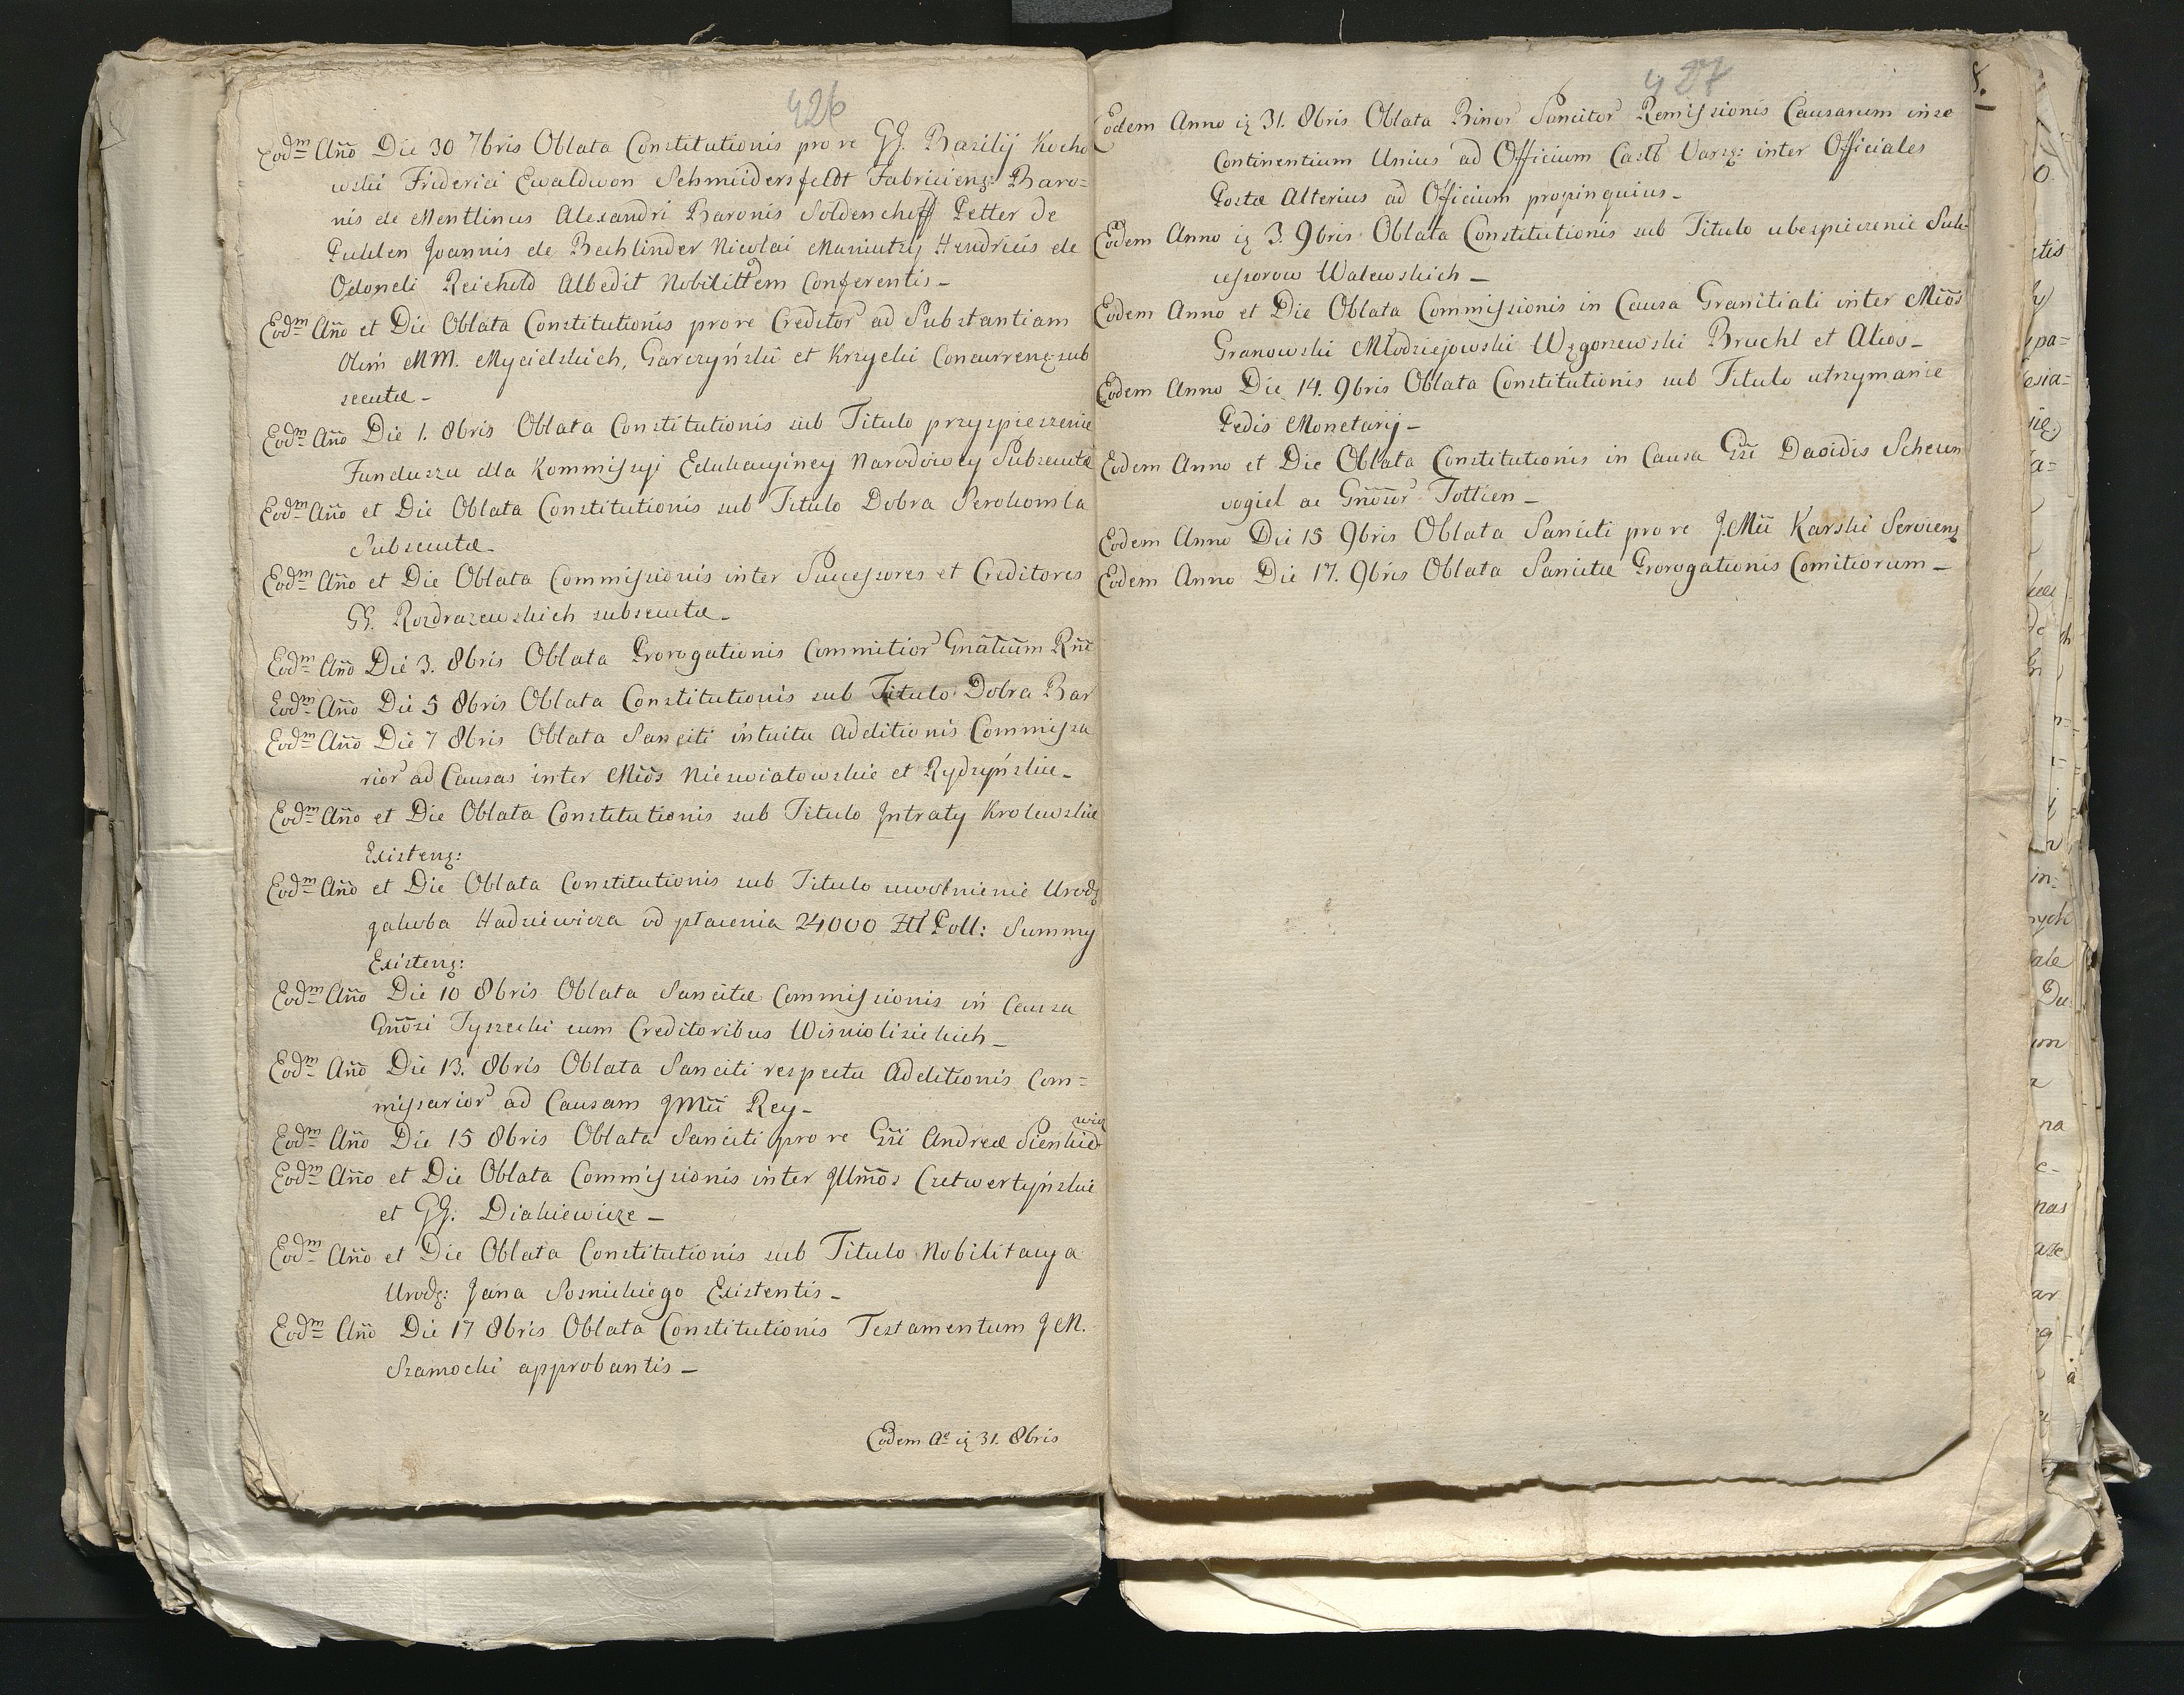 426
Eodm Año Die 30 7bris Oblata Constitutionis pro re GG. Basilij Kocho
wski Friderici Ewaldwon Schmiidersfeldt Fabricieng: Baro=
nis de Mentlinus Alexandri Baronis Soldenchoff Petter de
Puhlen Joannis de Bechlinder Nicolai Maniutzy Hendricis de
Odoneli Reichold Albedit Nobilittem Conferentis –
Eodm Año et Die Oblata Constitutionis pro re Creditor ad Substantiam
Olim MM. Mycielskich, Garczyński et Krzycki Concurreng sub
secutæ –
Eodm Año Die 1. 8bris Oblata Constitutionis sub Titulo przyspieszenie
Funduszu dla Kommissyi Edukacyiney Narodowey Subsecutæ
Eodm Año et Die Oblata Constitutionis sub Titulo Dobra Serokomla
Subsecutæ –
Eodm Año et Die Oblata Commissionis inter Successores et Creditores
GG. Rozdrazewskich subsecutæ –
Eodm Año Die 3. 8bris Oblata Prorogationis Commitior Gnãlium Rñe
Eodm Año Die 5 8bris Oblata Constitutionis sub Titulo Dobra Bar
Eodm Año Die 7 8bris Oblata Sanciti intuitu Additionis Commissa
rior ad Causas inter Mios Nieswiatowskie et Rydzyńskie –
Eodm Año et Die Oblata Constitutionis sub Titulo Jntraty Krolewskie
Existeng:
Eodm Año et Die Oblata Constitutionis sub Titulo uwolnienie Urodz
Jakuba Hadziewicza od płacenia 24000 Złł Poll: Summy
Existeng:
Eodm Año Die 10 8bris Oblata Sancitæ Commissionis in Causa
Gñosi Tyszecki cum Creditoribus Wisniolisickich –
Eodm Año Die 13. 8bris Oblata Sanciti respectu Additionis Com=
missarior ad Causam JMii Rey –
Eodm Año Die 15 8bris Oblata Sanciti pro re Gsi Andreæ Sienkie
wicz
Eodm Año et Die Oblata Commissionis inter Jllmos Czetwertyńskie
et GG. Diakiewicze –
Eodm Año et Die Oblata Constitutionis sub Titulo Nobilitacya
Urodz: Jana Sosnickiego Existentis –
Eodm Año Die 17 8bris Oblata Constitutionis Testamentum J M.
Szamocki approbantis –
Eodem Ae iz 31. 8bris
427
Eodem Anno iz 31. 8bris Oblata Binor Sancitor Remissionis Causarum in se
Continentium Unius ad Officium Castr Varsz: inter Officiales
Postæ Alterius ad Officium propinquius –
Eodem Anno iz 3. 9bris Oblata Constitutionis sub Titulo ubespieczenie Suk-
cessorow Walewskich –
Eodem Anno et Die Oblata Commissionis in Causa Granitiali inter Mios
Granowski Młodziejowski Węgorzewski Bruchl et Alios –
Eodem Anno Die 14. 9bris Oblata Constitutionis sub Titulo utrzymanie
Pedis Monetarij –
Eodem Anno et Die Oblata Constitutionis in Causa Gsi Davidis Scheun
vogiel ac Gnosor Tottien –
Eodem Anno Die 15 9bris Oblata Sanciti pro re JMii Karski Servieng
Eodem Anno Die 17. 9bris Oblata Sancitæ Prorogationis Comitiorum –